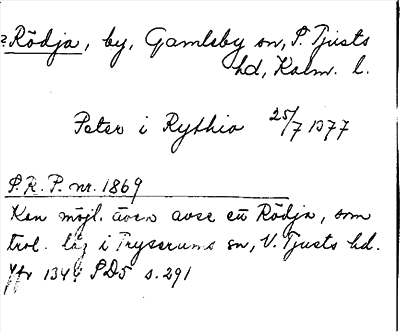 ? Rödja, by, Gamleby sn, S. Tjusts
hd, Kalm. l.
Peter i Rythio 25/7 1377
P.R.P. nr. 1869
Kan möjl. även avse ett Rödja, som
trol. låg i Tryserums sn, N. Tjusts hd.
Jfr 1344 SD5 s. 291